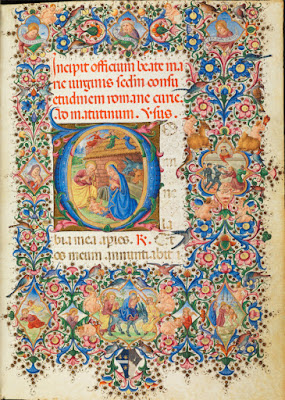 Incipit officium beate ma
rie uirginis scdm consu
etudinem romane curie.
Ad matutinum. V͂sus
D
ne
la
bia mea apies. R. Et
os meum annuntiabit